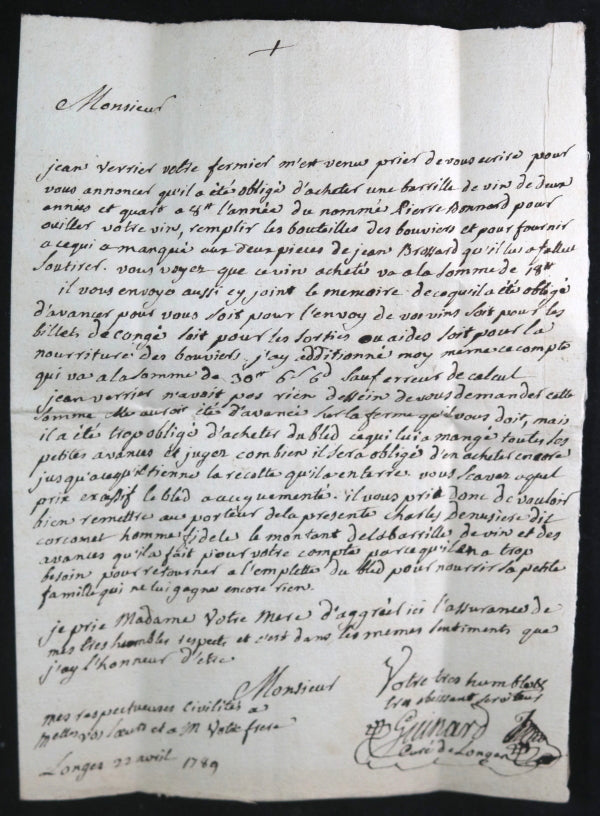 Monsieur
jean verrier votre fermier m'est venu prier de vous ecrire pour
vous annoncer qu'il a été obligé d'acheter une barrille de vin de deux
années et quart a 8tt l'année du nommé Pierre Bonnard pour
ouiller votre vin, remplir les bouteilles des bouviers et pour fournir
a ce qui a manqué aux deux pieces de jean Brossard qu'il lui a fallu
soutirer. vous voyez que ce vin acheté va a la somme de 18tt
il vous envoye aussi cy joint le memoire de ce qu'il a été obligé
d'avancer pour vous soit pour l'envoy de vos vins soit pour les
billets de congé soit pour les sorties ou aides soit pour la
nourriture des bouviers. j'ay additionné moy meme ce compte
qui va a la somme de 30tt 6s 6d sauf erreur de calcul
jean verrier n'avoit pas rien dessein de vous demander cette
somme elle auroit été d'avance sur la ferme qu'il vous doit, mais
il a été trop obligé d'acheter du bled ce qui lui a mangé toutes ses
petites avances et jugez combien il sera obligé d'en acheter encore
jusqu'a ce qu'il tienne la recolte qu'il a en terre. vous scavez a quel
prix excessif le bled a augmenté. il vous prie donc de vouloir
bien remettre au porteur de la presente Charles Denusiere dit
corcomet homme fidele le montant de la barrille de vin et des
avances qu'il a fait pour votre compte parce qu'il en a trop
besoin pour retourner a l'emplette du bled pour nourrir sa petite
famille qui ne lui gagne encore rien.
je prie Madame Votre Mere d'aggréer ici l'assurance de
mes tres humbles respects et c'est dans les memes sentiments que
j'ay l'honneur d'etre
Monsieur
Votre tres humble et
tres obeissant serviteur
Guinard
Curé de Longes
mes respectueuses civilités a
Melles vos soeurs et a Mr Votre frere
Longes 22 avril 1789